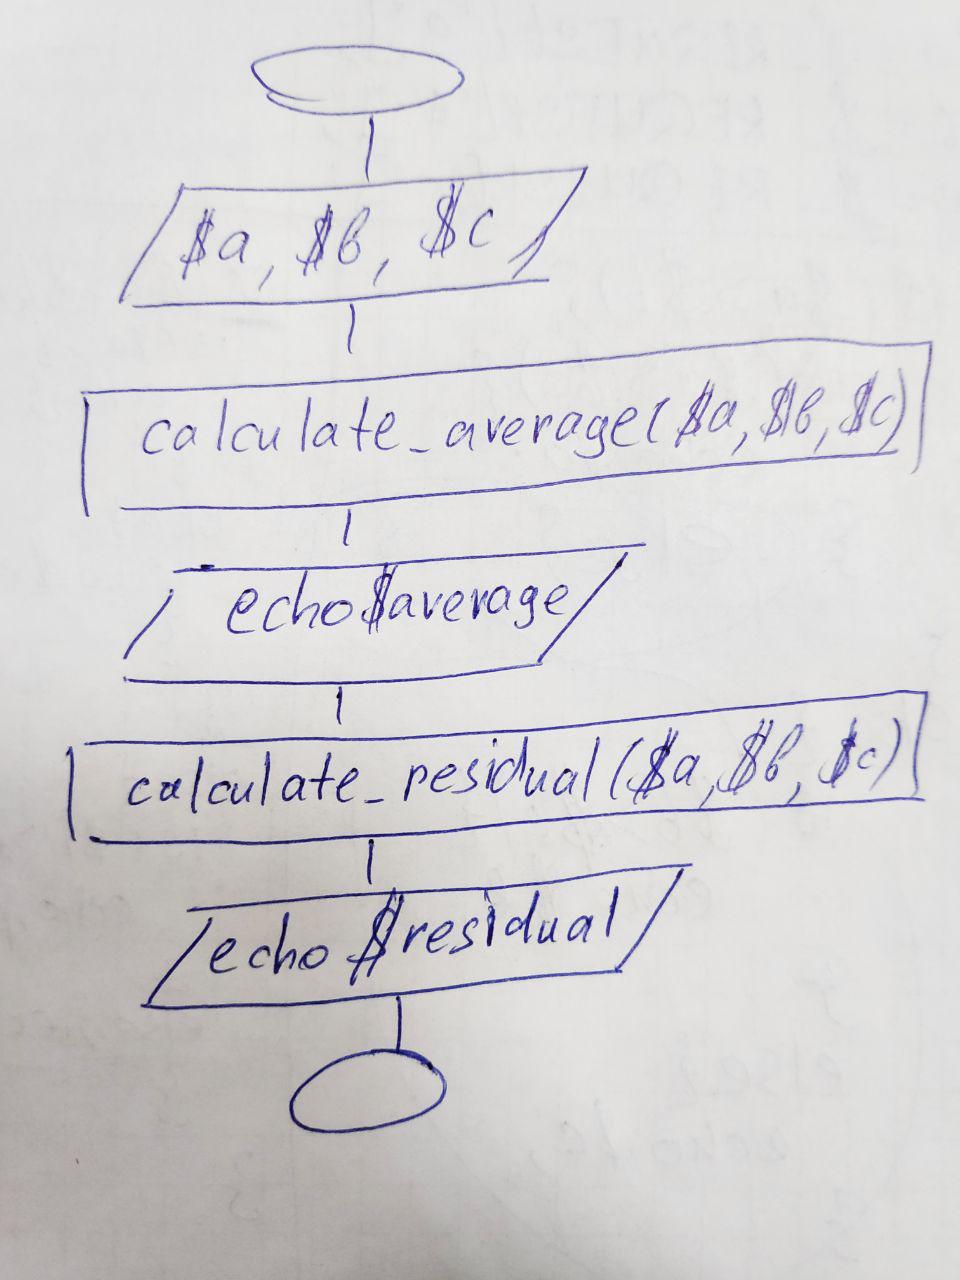 $a, $b, $c
calculate_average($a, $b, $c)
echo $average
calculate_residual($a, $b, $c)
echo $residual